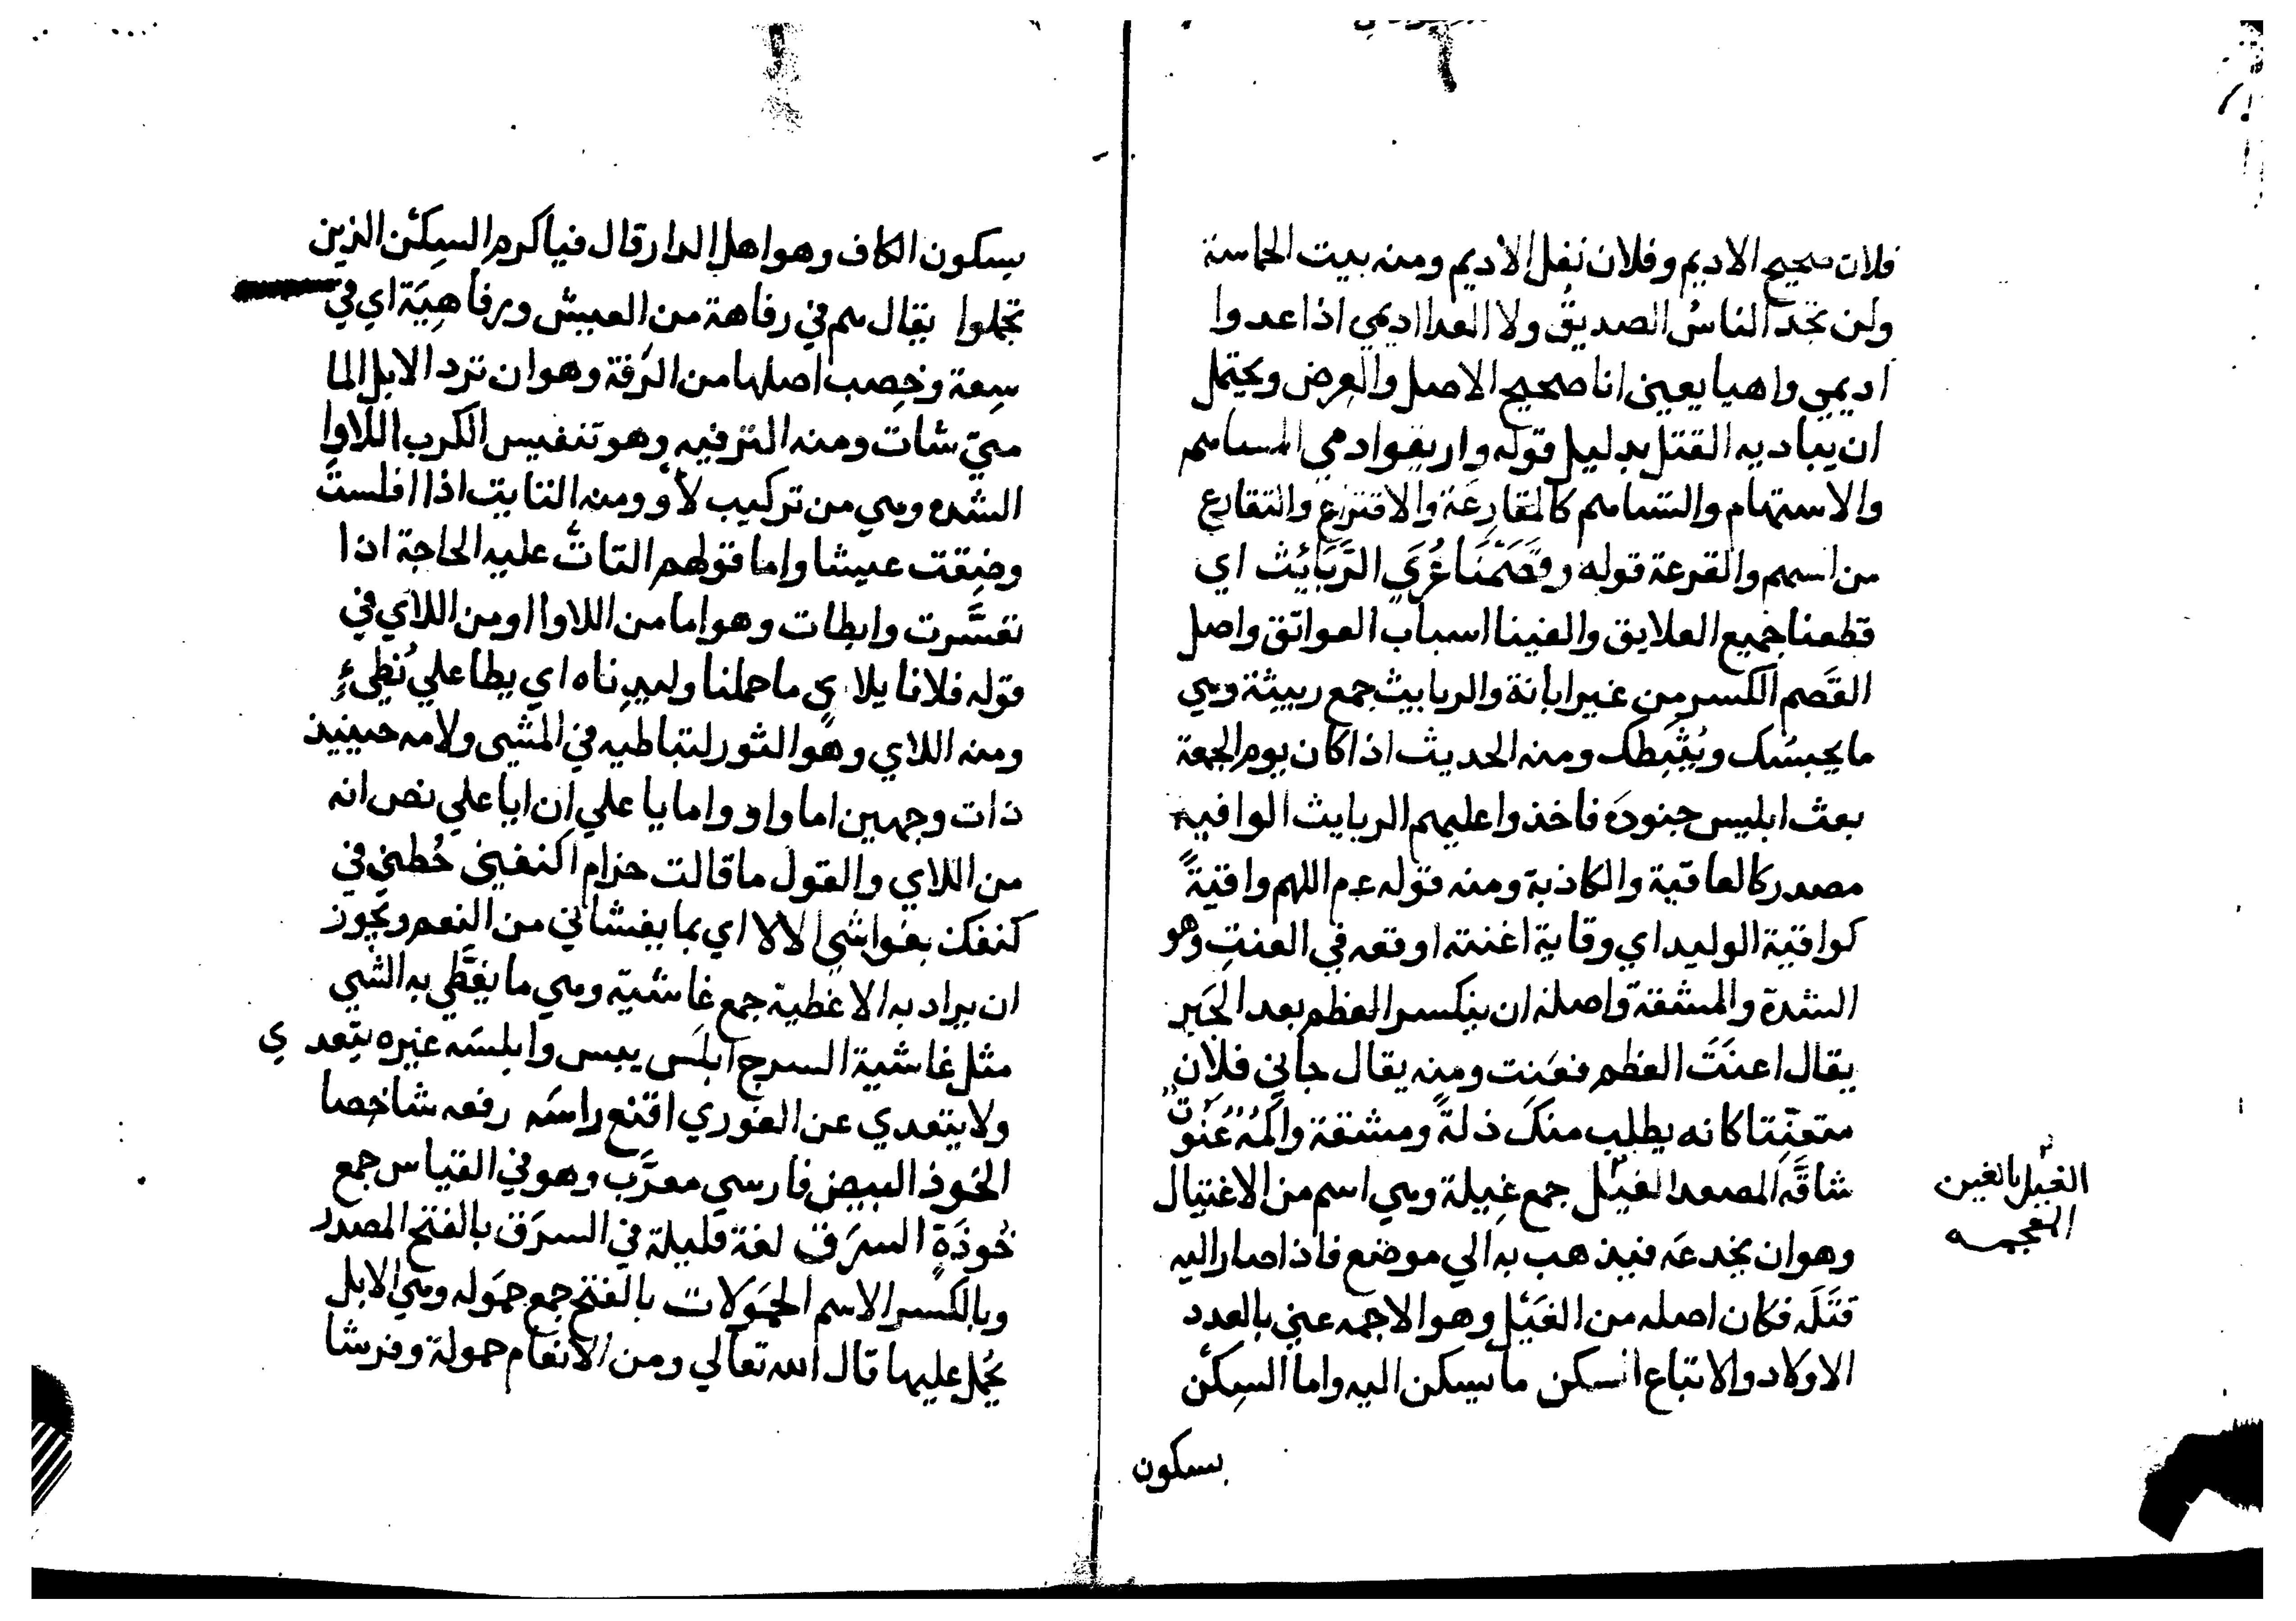 فلان صحيح الاديم وفلان نغل الاديم ومنه بيت الحماسة
ولن تجد الناس الصديق ولا العدا اديمي اذا عدوا
اديمي واهيا يعني انا صحيح الاصل والعرض ويحتمل
ان يباد به القتل بدليل قوله واريقوا دمي المساهم
والاستهام والتساهم كالمقارعة والاقتراع والتقارع
من اسهم والقرعة قوله وقَصَمْنَا عُرَي الرَّبَايُث اي
قطعنا جميع العلايق والفينا اسباب العوائق واصل
القَصم الكسر من غير ابانة والربايث جمع ربيثة وهي
ما يحبسُك ويُثْبِطك ومنه الحديث اذا كان يوم الجمعة
بعث ابليس جنودَه فاخذوا عليهم الربايث الواقية
مصدر كالعاقبة والكاذبة ومنه قوله عم اللهم واقيةً
كواقية الوليد اي وقاية اعنته اوقعه في العنتِ وهو
الشدة والمشقة واصله ان ينكسر العظم بعد الجَبر
يقال اعنَتَ العظم فعَنت ومنه يقال جاني فلان
متعنّتا كانه يطلب منك ذلةً ومشقة واكمُه عُنُوتٌ
شاقّه المصعد الغيَل جمع غِيلة وهي اسم من الاغتيال
وهو ان يخدعَه فيذهب به الي موضع فاذا صار اليه
قتَلَه فكان اصله من الغَيْل وهو الاجمه عني بالعدد
الاولاد والاتباع السكن ما يسكن اليه واما السكْن
بسكون
الغيل بالغين
المعجمه
بسكون الكاف وهو اهل الدار قال فيا كرم السكْن الذين
تحملوا يقال هم في رفاهة من العيش ورفاهِيَة اي في
سعة وخِصب اصلها من الرَفة وهو ان ترد الابل الما
متي شات ومنه الترفيه وهو تنفيس الكرب اللاوا
الشده وهي من تركيب لأو ومنه التابت اذا افلست
وضقت عيشا واما قولهم التاتْ عليه الحاجة اذا
تعسَّرت وابطات وهو اما من اللاوا او من اللاي في
قوله فلانا يلاي ما حملنا وليدناه اي بطا علي بُطيءٍ
ومنه اللاي وهو الثور لتباطيه في المشي ولامه حينيذ
ذات وجهين اما واو واما يا علي ان ابا علي نص انه
من اللاي والقول ما قالت حزام اكنفيني خُطني في
كنفك بغواشي الالا اي بما يغشاني من النعم ويجوز
ان يراد به الاغطية جمع غاشية وهي ما يغطَّي به الشي
مثل غاشية السرج ابلَس يبس وابلسَه غيره يتعدي
ولا يتعدي عن الغوري اقنع راسَه رفعه شاخصا
الخوذ البيض فارسي معرَّب وهو في القياس جمع
خُوذَةٍ السرَق لغة قليلة في السرَق بالفتح المصدر
وبالكسر الاسم الحمَولات بالفتح جمع حمَوله وهي الابل
يحُمل عليها قال الله تعالي ومن الانعام حمولة وفرشا